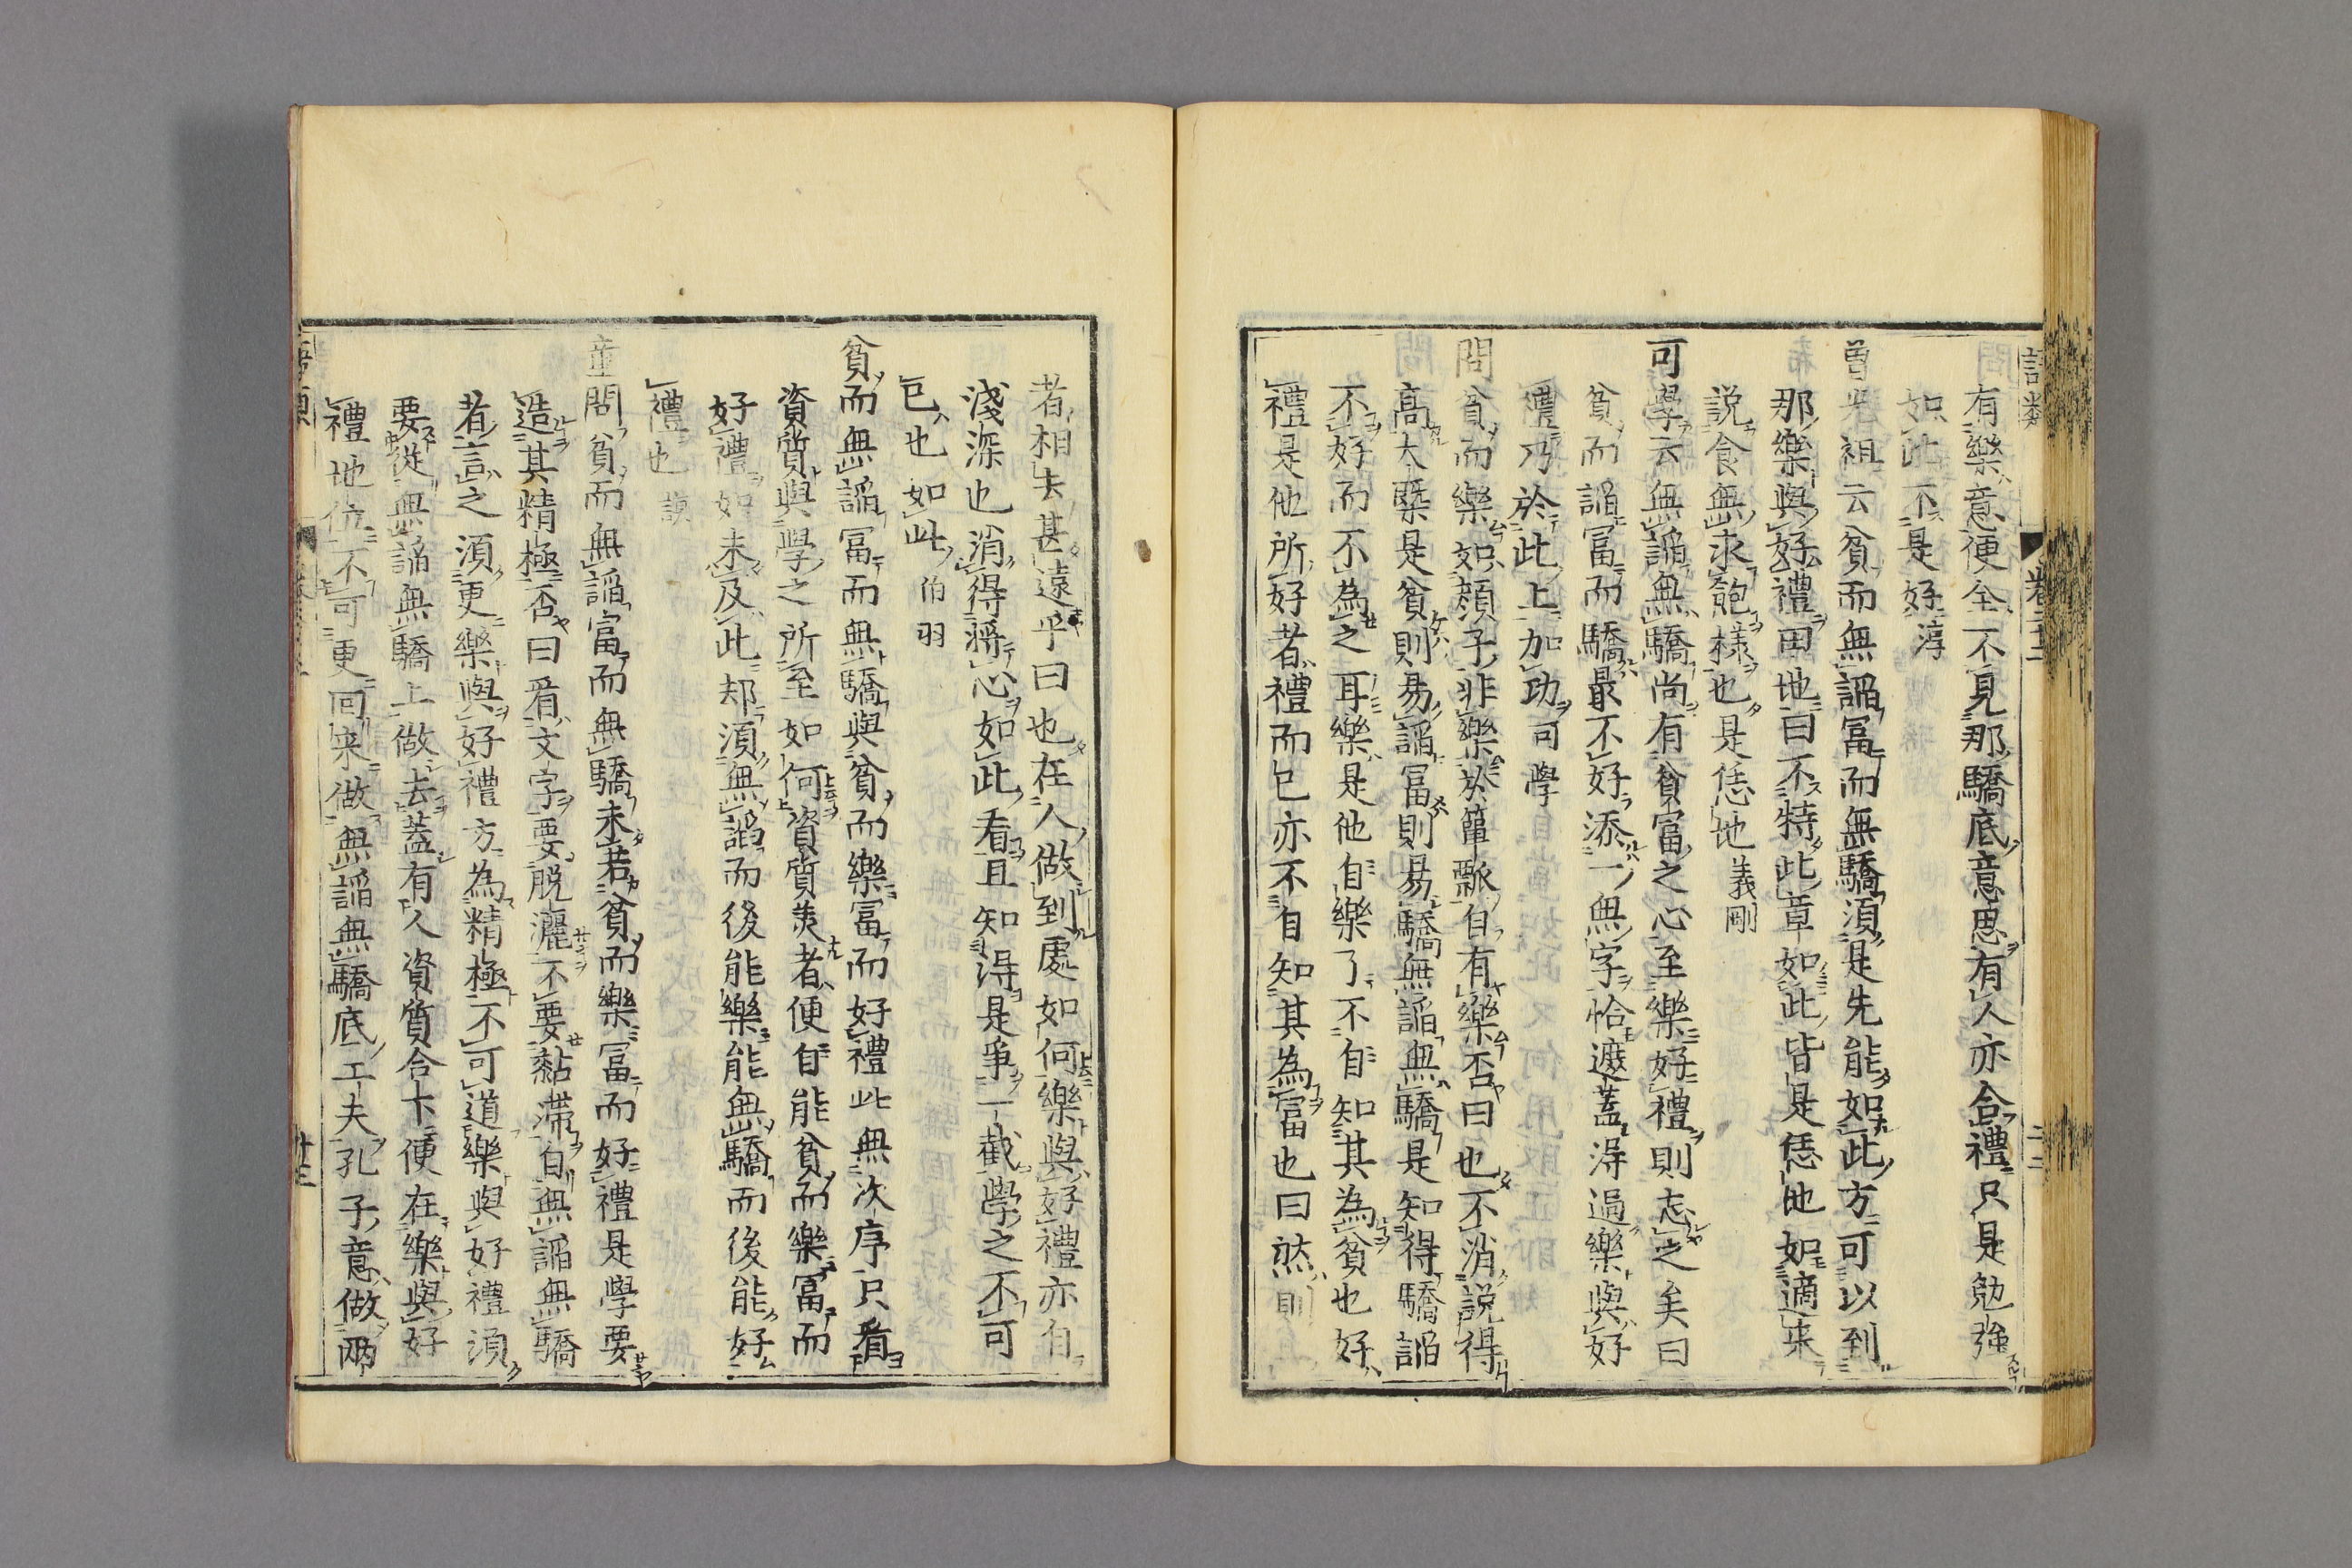 有樂意便全不見那驕底意思有人亦合禮只是勉強
如此不是好淳
曾光祖云貧而無諂冨而無驕須是先能如此方可以到
那樂與好禮田地曰不特此章如此皆是恁地如適来
説食無求飽樣也是恁地義剛
可學云無諂無驕尚有貧富之心至樂好禮則志之矣曰
貧而諂冨而驕最不好添一無字恰遮蓋淂過樂與好
禮乃於此上加功可學
問貧而樂如顔子非樂於簞瓢自有樂否曰也不消説得
高大槩是貧則易諂冨則易驕無諂無驕是知得驕諂
不好而不為之耳樂是他自樂了不自知其為貧也好
禮是他所好者禮而已亦不自知其為富也曰然則
者相去甚遠乎曰也在人做到處如何樂與好禮亦自
淺深也消得將心如此看且知淂是爭一截學之不可
已也如此伯羽
貧而無諂冨而無驕與貧而樂冨而好禮此無次序只看
資質與學之所至如何資質美者便自能貧而樂冨而
好禮如未及此却須無諂而後能樂能無驕而後能好
禮也謨
童問貧而無諂富而無驕未若貧而樂冨而好禮是學要
造其精極否曰看文字要脱灑不要黏滞自無諂無驕
者言之須更樂與好禮方為精極不可道樂與好禮須
要從無諂無驕上做去蓋有人資質合下便在樂與好
禮地位不可更回来做無諂無驕底工夫孔子意做兩